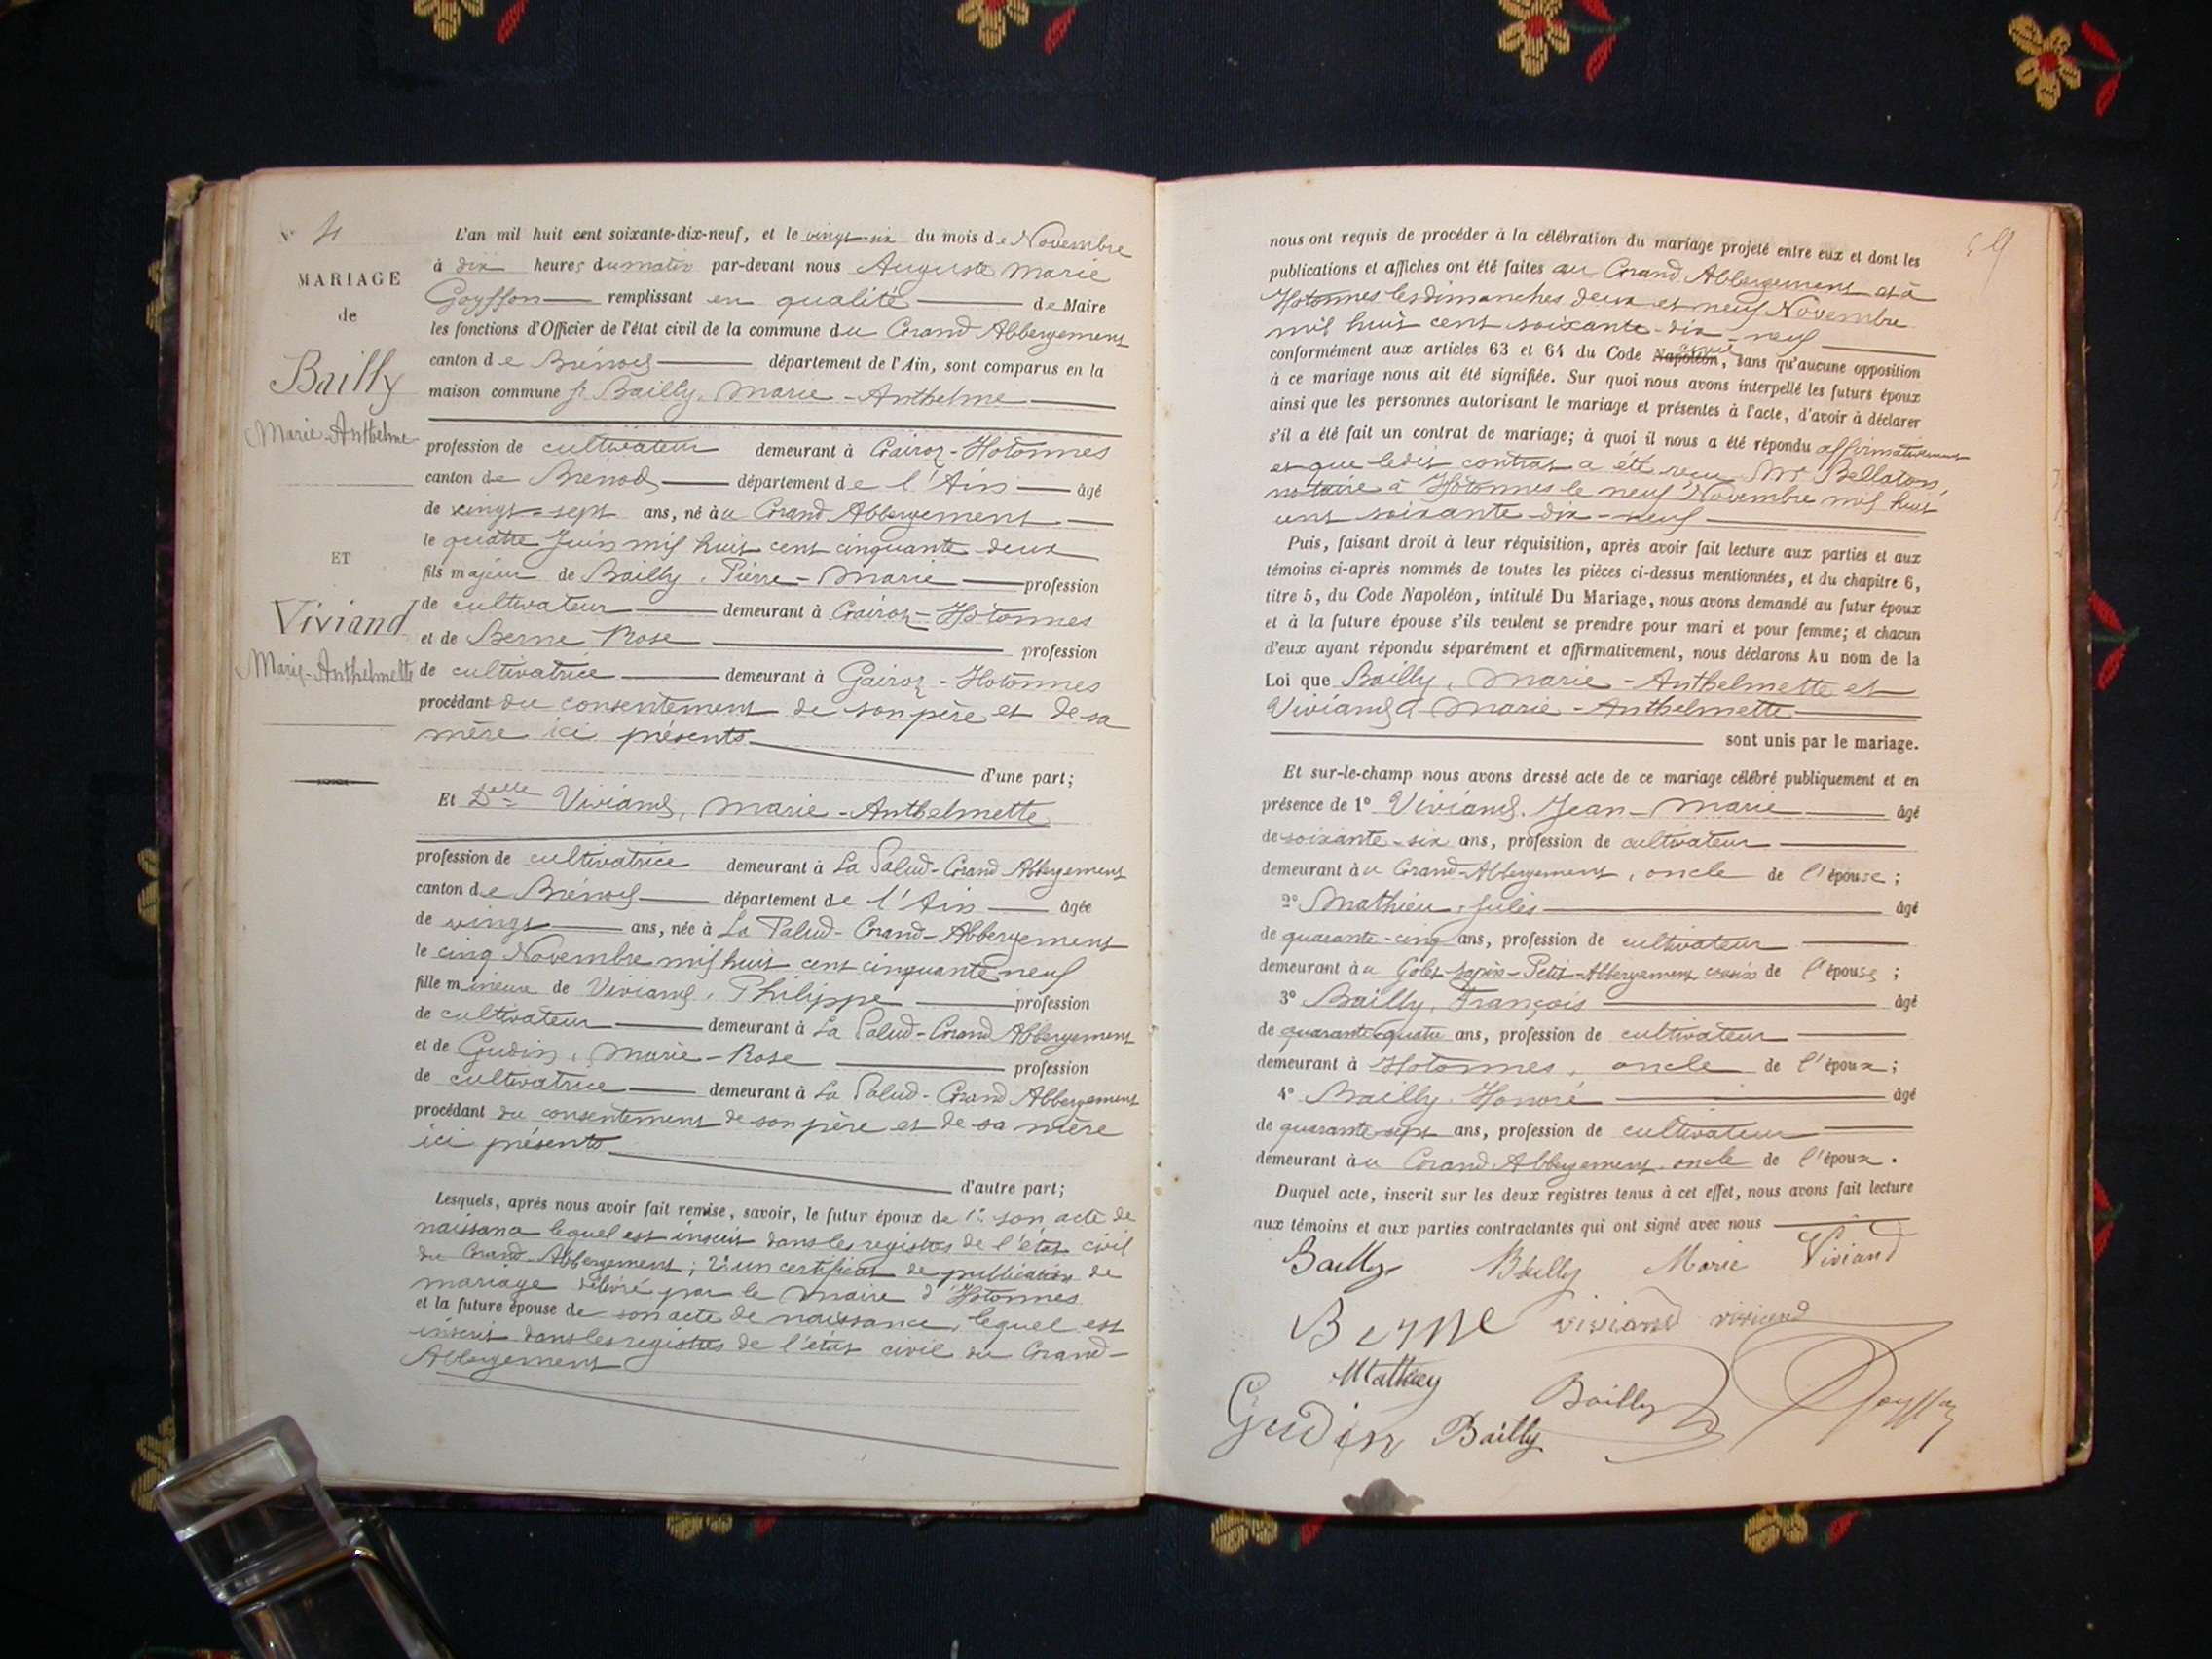 N° 4
MARIAGE
de
Bailly
Marie-Anthelme
ET
Viviand
Marie-Anthelmette
L'an mil huit cent soixante-dix-neuf, et le vingt-six du mois de Novembre
à dix heures du matin par-devant nous Auguste Marie
Goyffon remplissant en qualité de Maire
les fonctions d'Officier de l'état civil de la commune du Grand Abbergement
canton de Brénod département de l'Ain, sont comparus en la
maison commune Sr Bailly, Marie-Anthelme
profession de cultivateur demeurant à Gairoz-Hotonnes
canton de Brénod département de l'Ain âgé
de vingt-sept ans, né au Grand Abbergement
le quatre Juin mil huit cent cinquante deux
fils majeur de Bailly, Pierre-Marie profession
de cultivateur demeurant à Gairoz-Hotonnes
et de Berne Rose profession
de cultivatrice demeurant à Gairoz-Hotonnes
procédant du consentement de son père et de sa
mère ici présents
d'une part;
Et Delle Viviand, Marie-Anthelmette
profession de cultivatrice demeurant à La Palud-Grand Abbergement
canton de Brénod département de l'Ain âgée
de vingt ans, née à La Palud-Grand-Abbergement
le cinq Novembre mil huit cent cinquante neuf
fille mineure de Viviand, Philippe profession
de cultivateur demeurant à La Palud-Grand Abbergement
et de Gudin, Marie-Rose profession
de cultivatrice demeurant à La Palud-Grand Abbergement
procédant du consentement de son père et de sa mère
ici présents
d'autre part;
Lesquels, après nous avoir fait remise, savoir, le futur époux de 1° son acte de
naissance lequel est inscrit dans les registres de l'état civil
du Grand-Abbergement; 2° un certificat de publication de
mariage délivré par le Maire d'Hotonnes
et la future épouse de son acte de naissance, lequel est
inscrit dans les registres de l'état civil du Grand-
Abbergement
nous ont requis de procéder à la célébration du mariage projeté entre eux et dont les
publications et affiches ont été faites au Grand Abbergement et à
Hotonnes les dimanches deux et neuf Novembre
mil huit cent soixante-dix-neuf
conformément aux articles 63 et 64 du Code Napoléon civil, sans qu'aucune opposition
à ce mariage nous ait été signifiée. Sur quoi nous avons interpellé les futurs époux
ainsi que les personnes autorisant le mariage et présentes à l'acte, d'avoir à déclarer
s'il a été fait un contrat de mariage; à quoi il nous a été répondu affirmativement
et que ledit contrat a été reçu Me Bellaton,
notaire à Hotonnes le neuf Novembre mil huit
cent soixante-dix-neuf
Puis, faisant droit à leur réquisition, après avoir fait lecture aux parties et aux
témoins ci-après nommés de toutes les pièces ci-dessus mentionnées, et du chapitre 6,
titre 5, du Code Napoléon, intitulé Du Mariage, nous avons demandé au futur époux
et à la future épouse s'ils veulent se prendre pour mari et pour femme; et chacun
d'eux ayant répondu séparément et affirmativement, nous déclarons Au nom de la
Loi que Bailly, Marie-Anthelmette et
Viviand Marie-Anthelmette
sont unis par le mariage.
Et sur-le-champ nous avons dressé acte de ce mariage célébré publiquement et en
présence de 1° Viviand, Jean-Marie âgé
de soixante-six ans, profession de cultivateur
demeurant au Grand-Abbergement, oncle de l'épouse;
2° Mathieu, Jules âgé
de quarante-cinq ans, profession de cultivateur
demeurant au Golet-Sapin-Petit-Abbergement cousin de l'épouse;
3° Bailly, François âgé
de quarante-quatre ans, profession de cultivateur
demeurant à Hotonnes, oncle de l'époux;
4° Bailly, Honoré âgé
de quarante-sept ans, profession de cultivateur
demeurant au Grand Abbergement, oncle de l'époux.
Duquel acte, inscrit sur les deux registres tenus à cet effet, nous avons fait lecture
aux témoins et aux parties contractantes qui ont signé avec nous
Bailly Bailly Marie Viviand
Berne viviand viviand
Mathieu
Gudin Bailly Bailly Goyffon